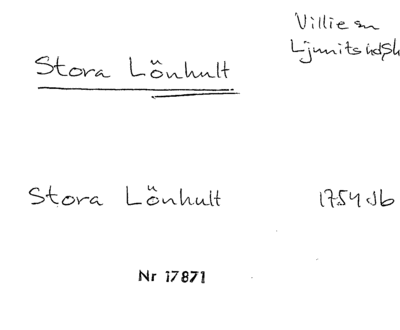 Villie sn
Ljunits hd, Sk
Stora Lönhult
Stora Lönhult 1754 Jb
Nr 17871